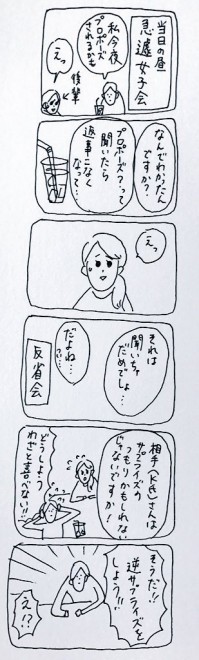 当日の昼
急遽女子会
私今夜
プロポーズ
されるかも
えっ
後輩
なんでわかったん
ですか?
プロポーズ?って
聞いたら
返事こなく
なって…
えっ
それは
聞いちゃ
だめでしょ…
だよね…
つい…
反省会
相手(K氏)さんは
サプライズの
つもりかもしれない
じゃないですか!
どうしよう
わざと喜べない!!
そうだ!!
逆サプライズを
しよう!!
え!?